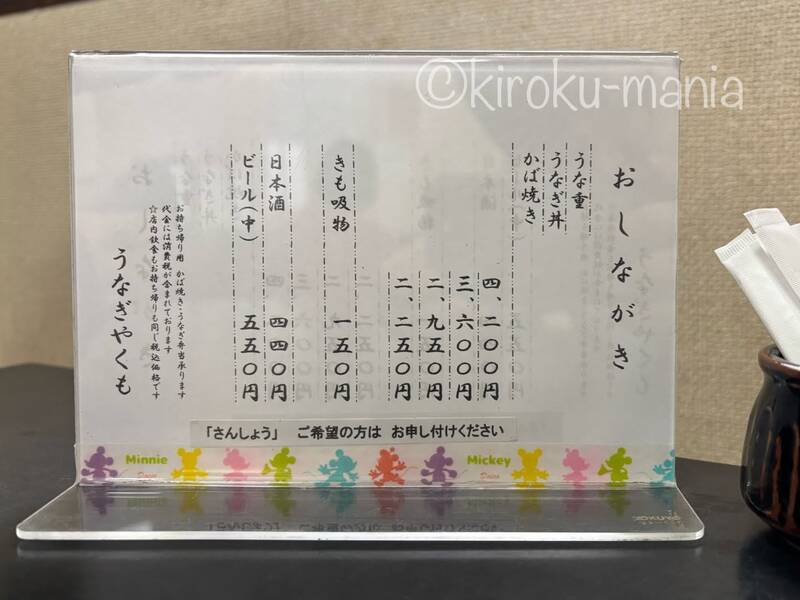 おしながき
うな重
うなぎ丼
かば焼き
四、二〇〇円
三、六〇〇円
二、九五〇円
二、二五〇円
きも吸物 一五〇円
日本酒 四四〇円
ビール(中) 五五〇円
お持ち帰り用 かば焼き・うなぎ弁当承ります
代金には消費税が含まれております
☆店内飲食もお持ち帰りも同じ税込価格です
うなぎやくも
「さんしょう」 ご希望の方は お申し付けください
Minnie
Mickey
©kiroku-mania